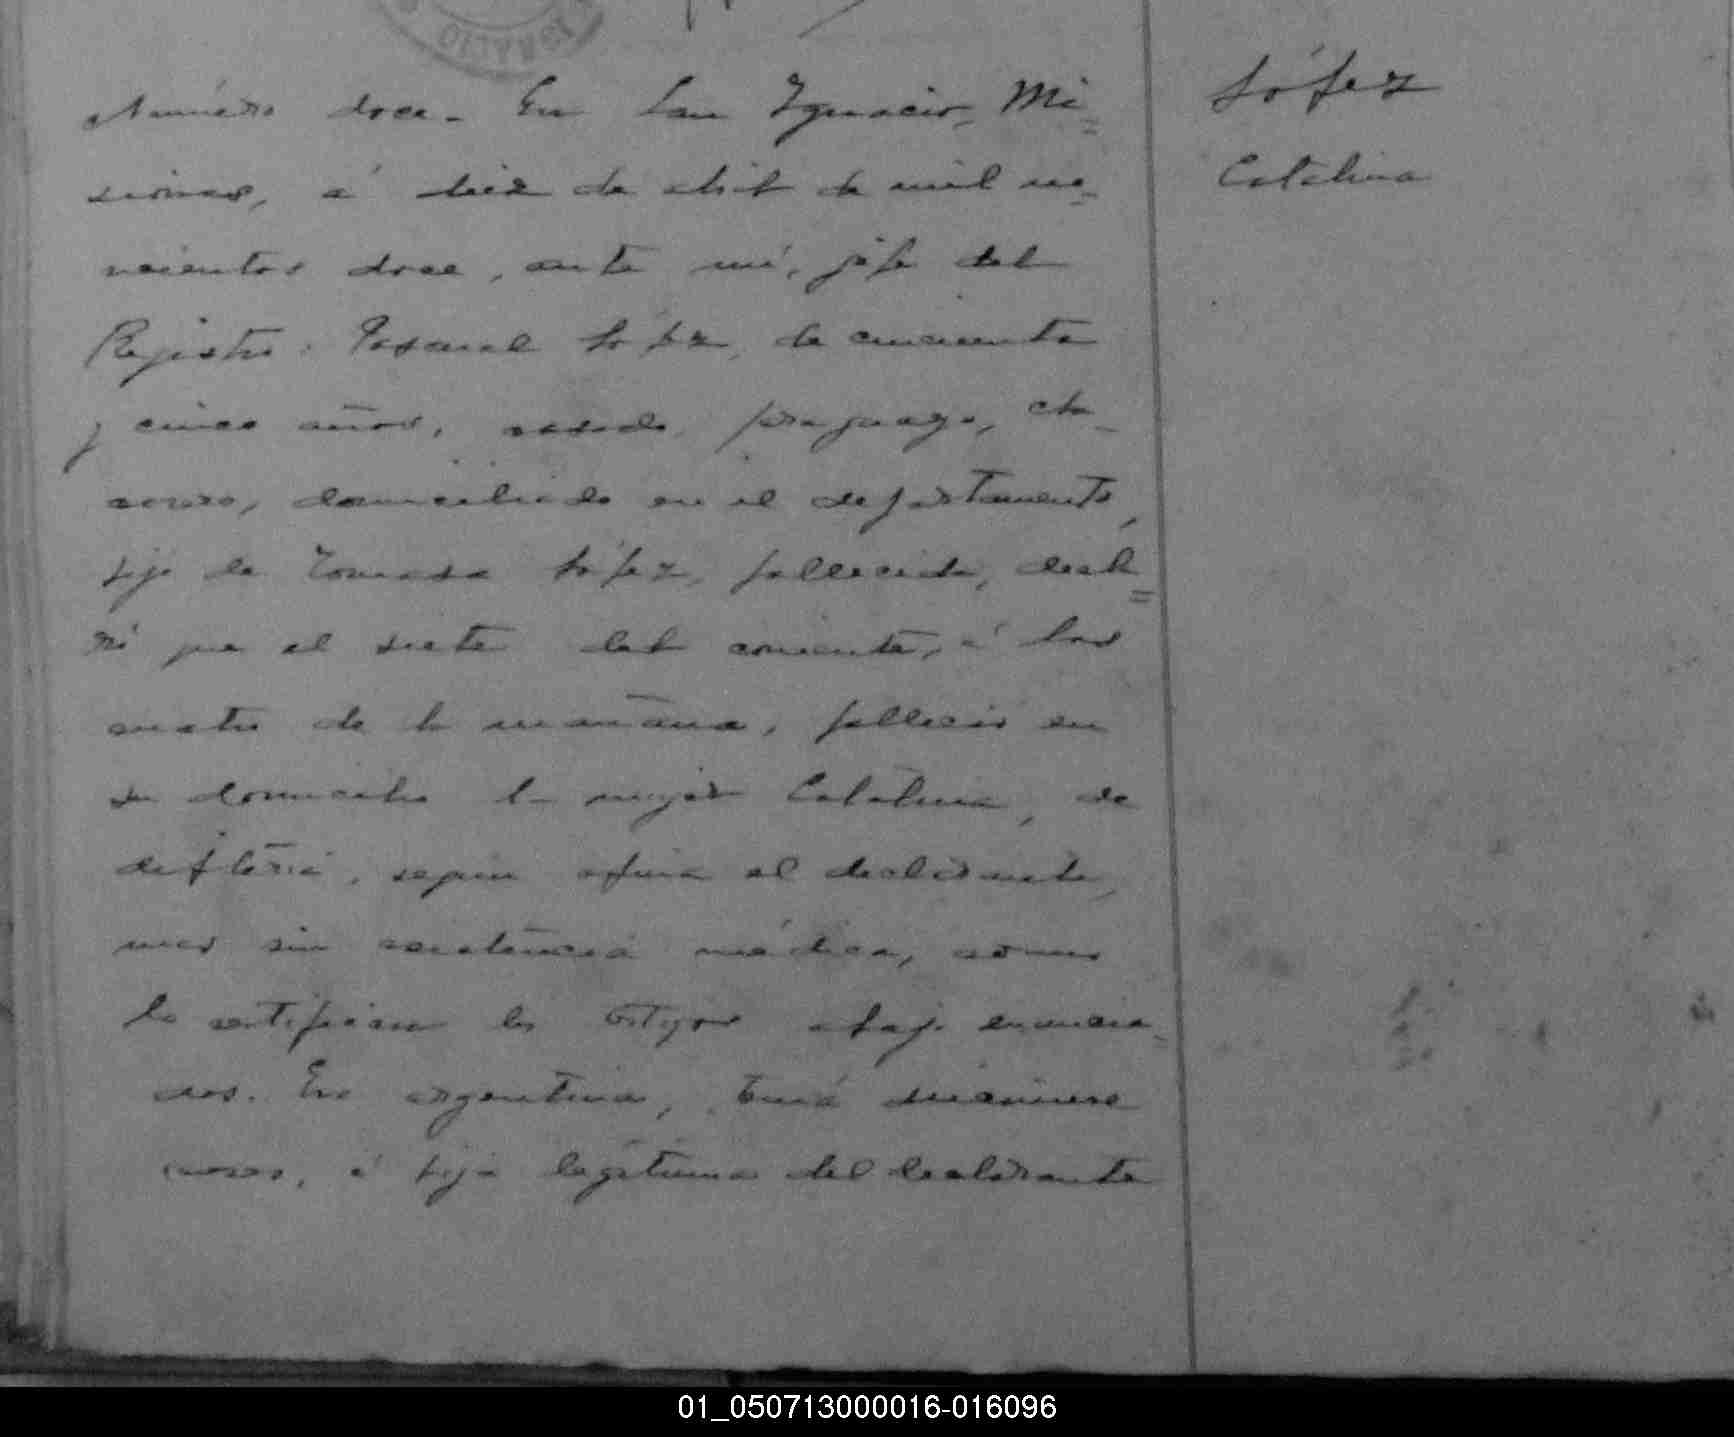 Número doce. En San Ignacio, Mi=
siones, á diez de abril de mil no-
vecientos doce, ante mí, jefe del
Registro: Pascual López, de cincuenta
y cinco años, casado, paraguayo, cha-
crero, domiciliado en el departamento,
hijo de Tomasa López, fallecida, decla=
ró que el siete del corriente, á las
cuatro de la mañana, falleció en
su domicilio la mujer Catalina, de
difteria, según afirma el declarante,
mas sin asistencia médica, como
lo certifican los testigos abajo enuncia-
dos. Era argentina, tenía diecinueve
meses, é hija legítima del declarante
López
Catalina
01_050713000016-016096